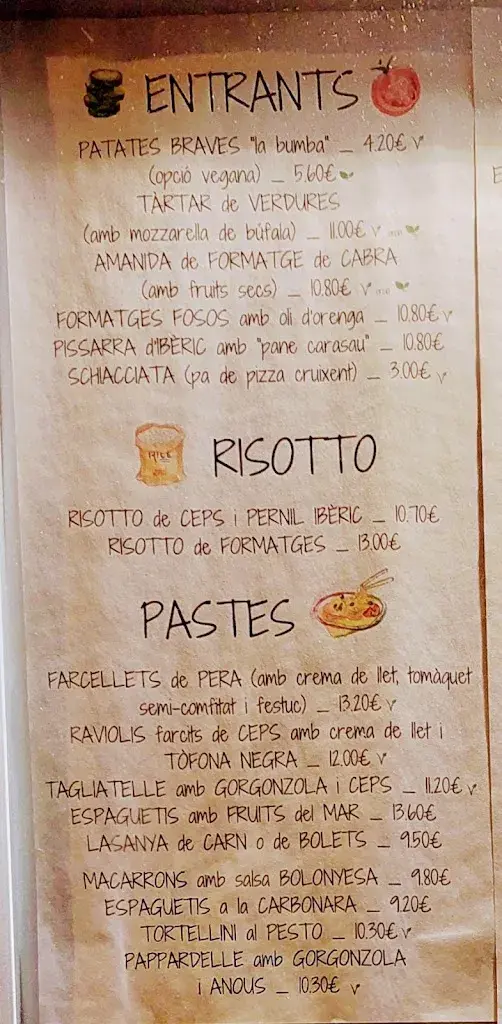 ENTRANTS
PATATES BRAVES "la bumba" _ 4.20€ V
(opció vegana) _ 5.60€
TÀRTAR de VERDURES
(amb mozzarella de búfala) _ 11.00€ V
AMANIDA de FORMATGE de CABRA
(amb fruits secs) _ 10.80€ V
FORMATGES FOSOS amb oli d'orenga _ 10.80€ V
PISSARRA d'IBÈRIC amb "pane carasau" _ 10.80€
SCHIACCIATA (pa de pizza cruixent) _ 3.00€ V
RICE
RISOTTO
RISOTTO de CEPS i PERNIL IBÈRIC _ 10.70€
RISOTTO de FORMATGES _ 13.00€
PASTES
FARCELLETS de PERA (amb crema de llet, tomàquet
semi-comfitat i festuc) _ 13.20€ V
RAVIOLIS farcits de CEPS amb crema de llet i
TÒFONA NEGRA _ 12.00€ V
TAGLIATELLE amb GORGONZOLA i CEPS _ 11.20€ V
ESPAGUETIS amb FRUITS del MAR _ 13.60€
LASANYA de CARN o de BOLETS _ 9.50€
MACARRONS amb salsa BOLONYESA _ 9.80€
ESPAGUETIS a la CARBONARA _ 9.20€
TORTELLINI al PESTO _ 10.30€ V
PAPPARDELLE amb GORGONZOLA
i ANOUS _ 10.30€ V